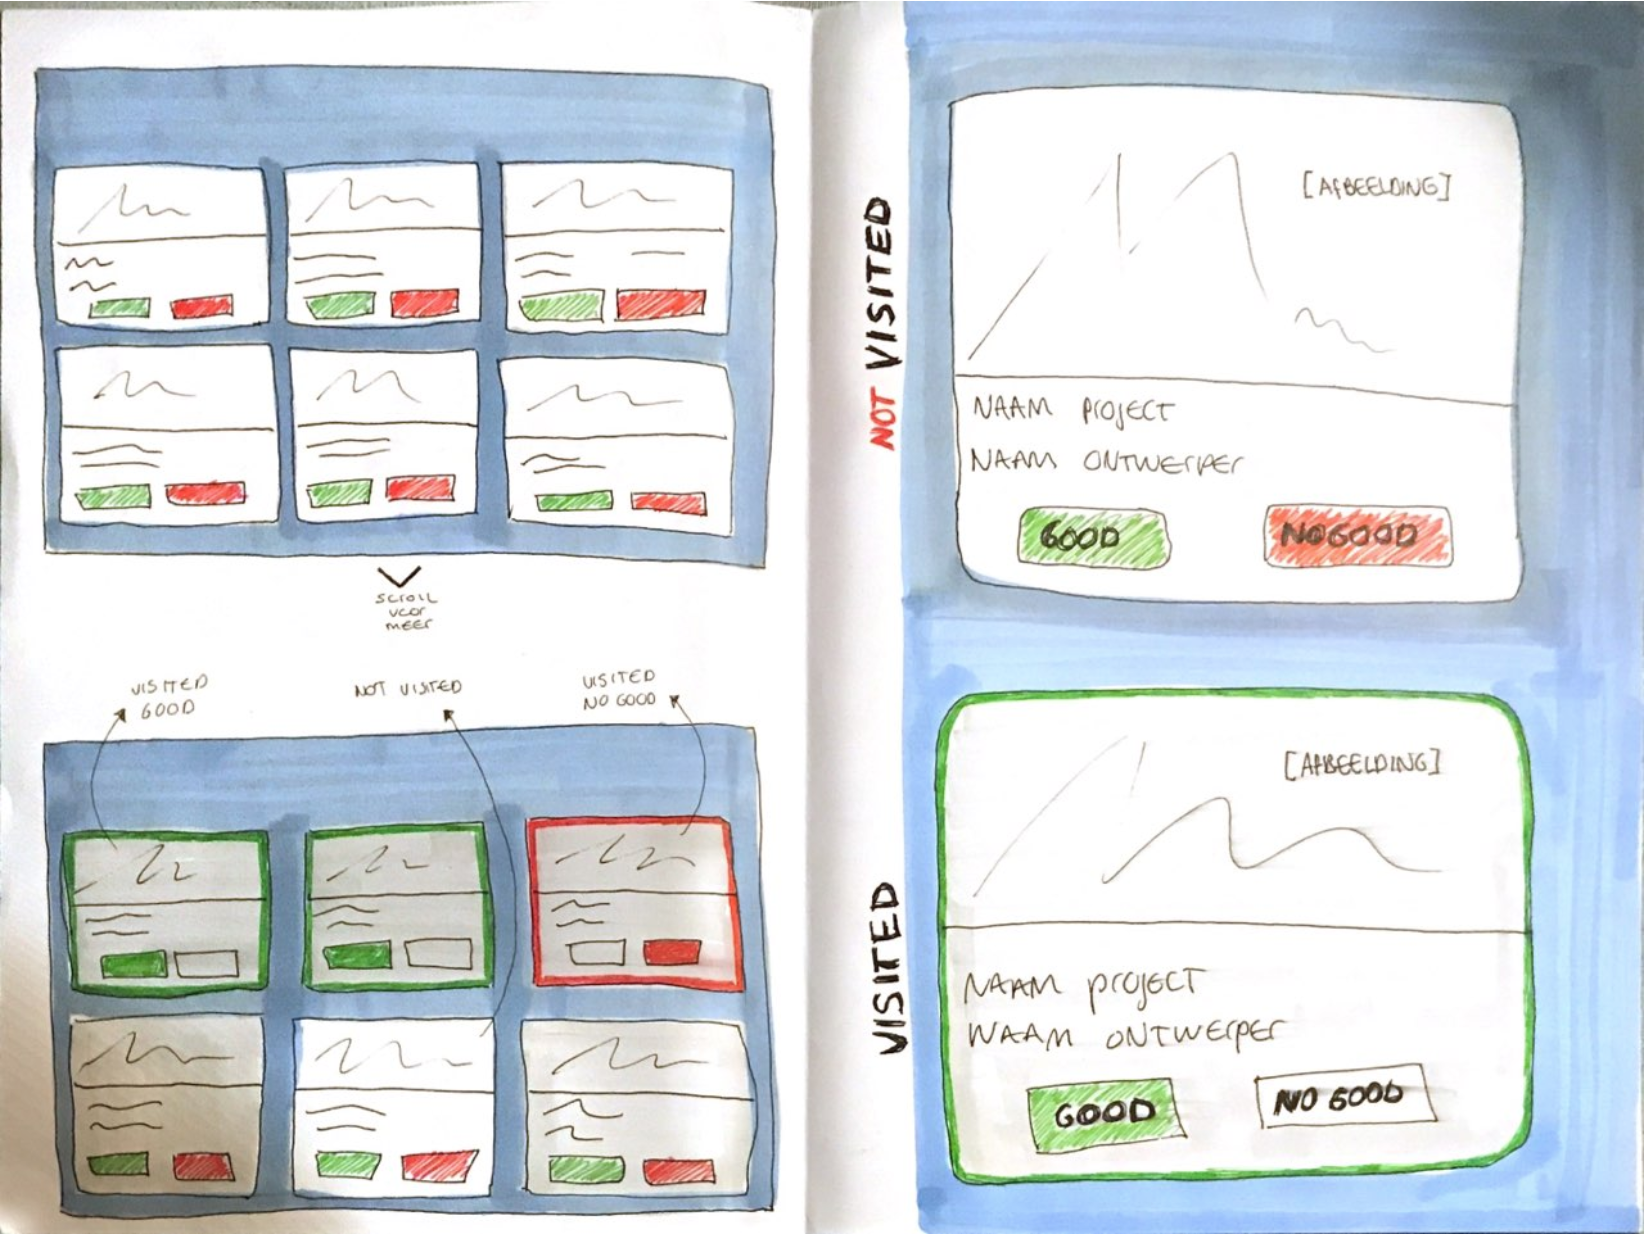 SCROLL
VOOR
MEER
VISITED
GOOD
NOT VISITED
VISITED
NO GOOD
NOT VISITED
[AFBEELDING]
NAAM PROJECT
NAAM ONTWERPER
GOOD
NO GOOD
VISITED
[AFBEELDING]
NAAM PROJECT
NAAM ONTWERPER
GOOD
NO GOOD